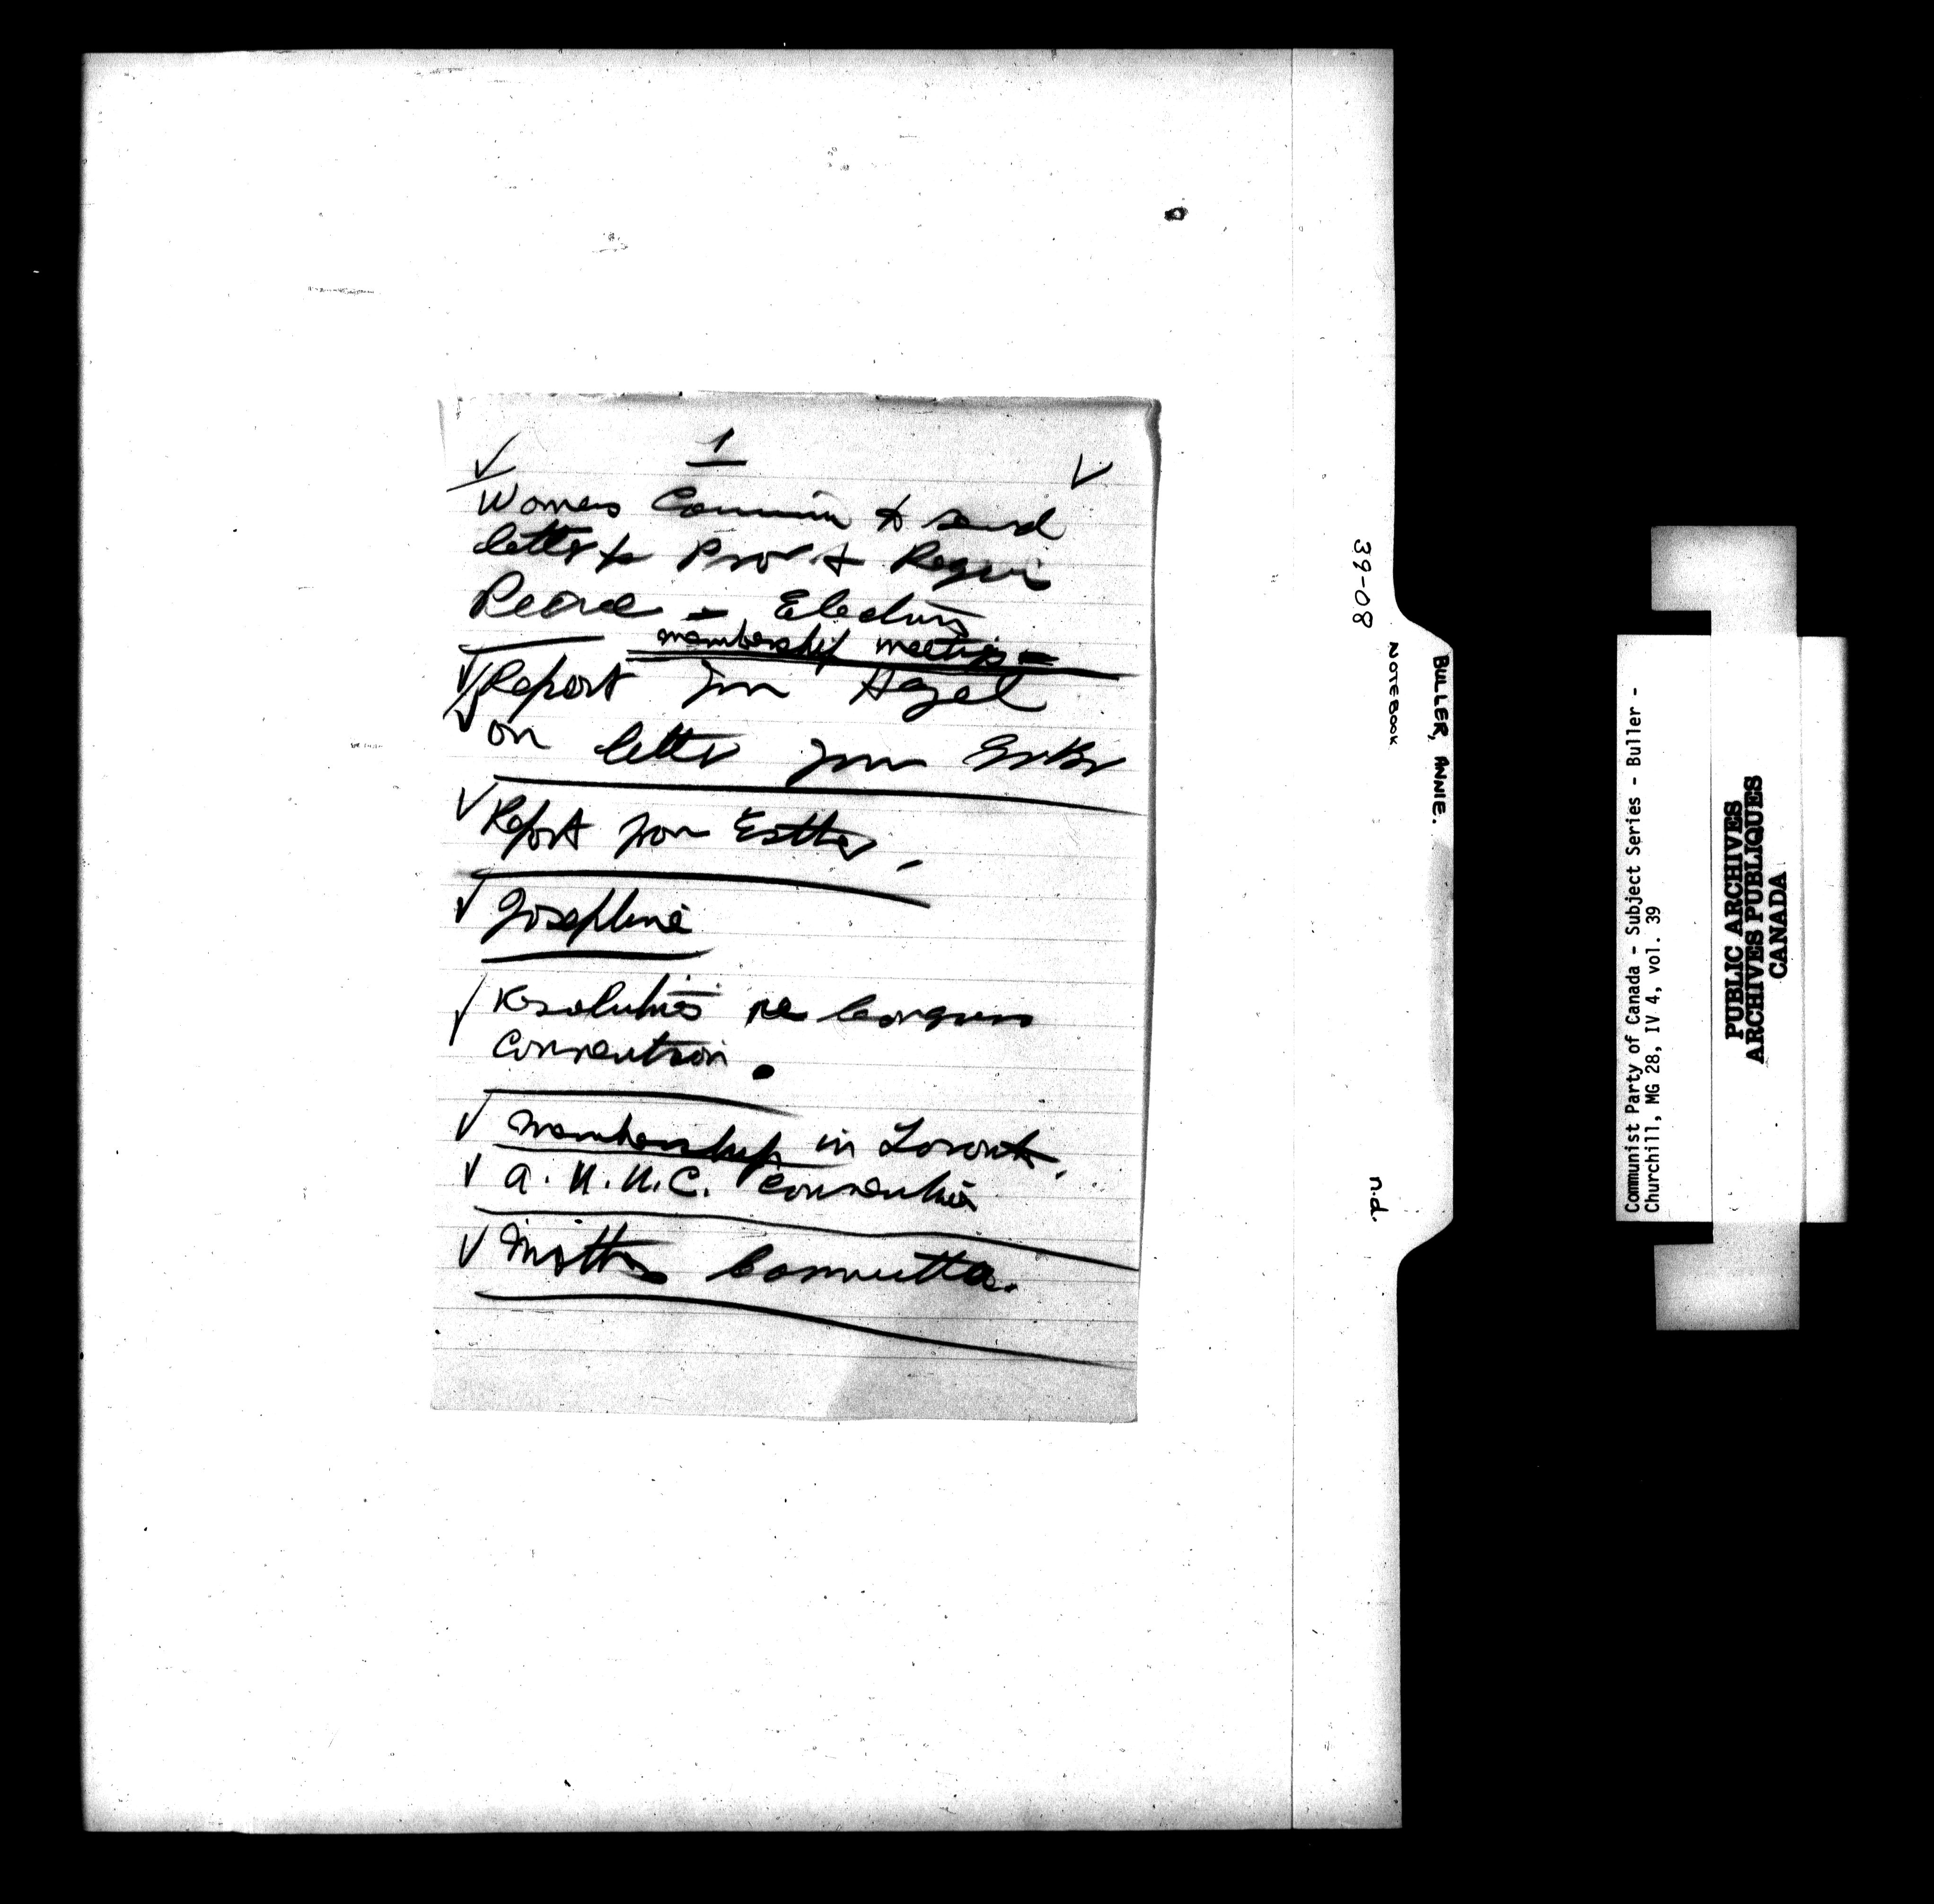 1
Womens Commin to send
letter to Prov &
Peace - Election
membership meetings -
Report from Hazel
on letter from
Report from Esther.
Josephine
Resolutions re Congress
Convention.
membership in Toronto.
a. U. U. C. Convention
Mothers Committee.
39-08
BULLER, ANNIE.
NOTEBOOK
n.d.
Communist Party of Canada - Subject Series - Buller -
Churchill, MG 28, IV 4, vol. 39
PUBLIC ARCHIVES
ARCHIVES PUBLIQUES
CANADA